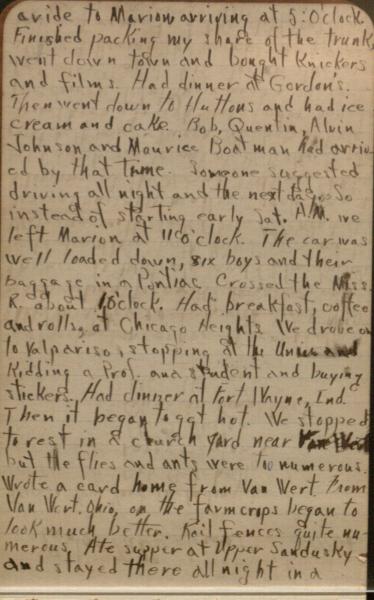 a ride to Marion arriving at 5:O'clock
Finished packing my share of the trunk,
went down town and bought Knickers
and films. Had dinner at Gordon's.
Then went down to Huttons and had ice
cream and cake. Bob, Quentin, Alvin
Johnson and Maurice Boatman had arriv-
ed by that time. Someone suggested
driving all night and the next day. So
instead of starting early Sat. A.M. we
left Marion at 11 o'clock. The car was
well loaded down, six boys and their
baggage in a Pontiac. Crossed the Miss.
R. about 1 o'clock. Had breakfast, coffee
and rolls, at Chicago Heights. We drove on
to Valpariso, stopping at the Univ. and
Kidding a Prof. and student and buying
stickers. Had dinner at Fort Wayne, Ind.
Then it began to get hot. We stopped
to rest in a church yard near Van Wert
but the flies and ants were to numerous.
Wrote a card home from Van Wert. From
Van Wert, Ohio, on the farm crops began to
look much better. Rail fences quite nu-
merous. Ate supper at Upper Sandusky
and stayed there all night in a